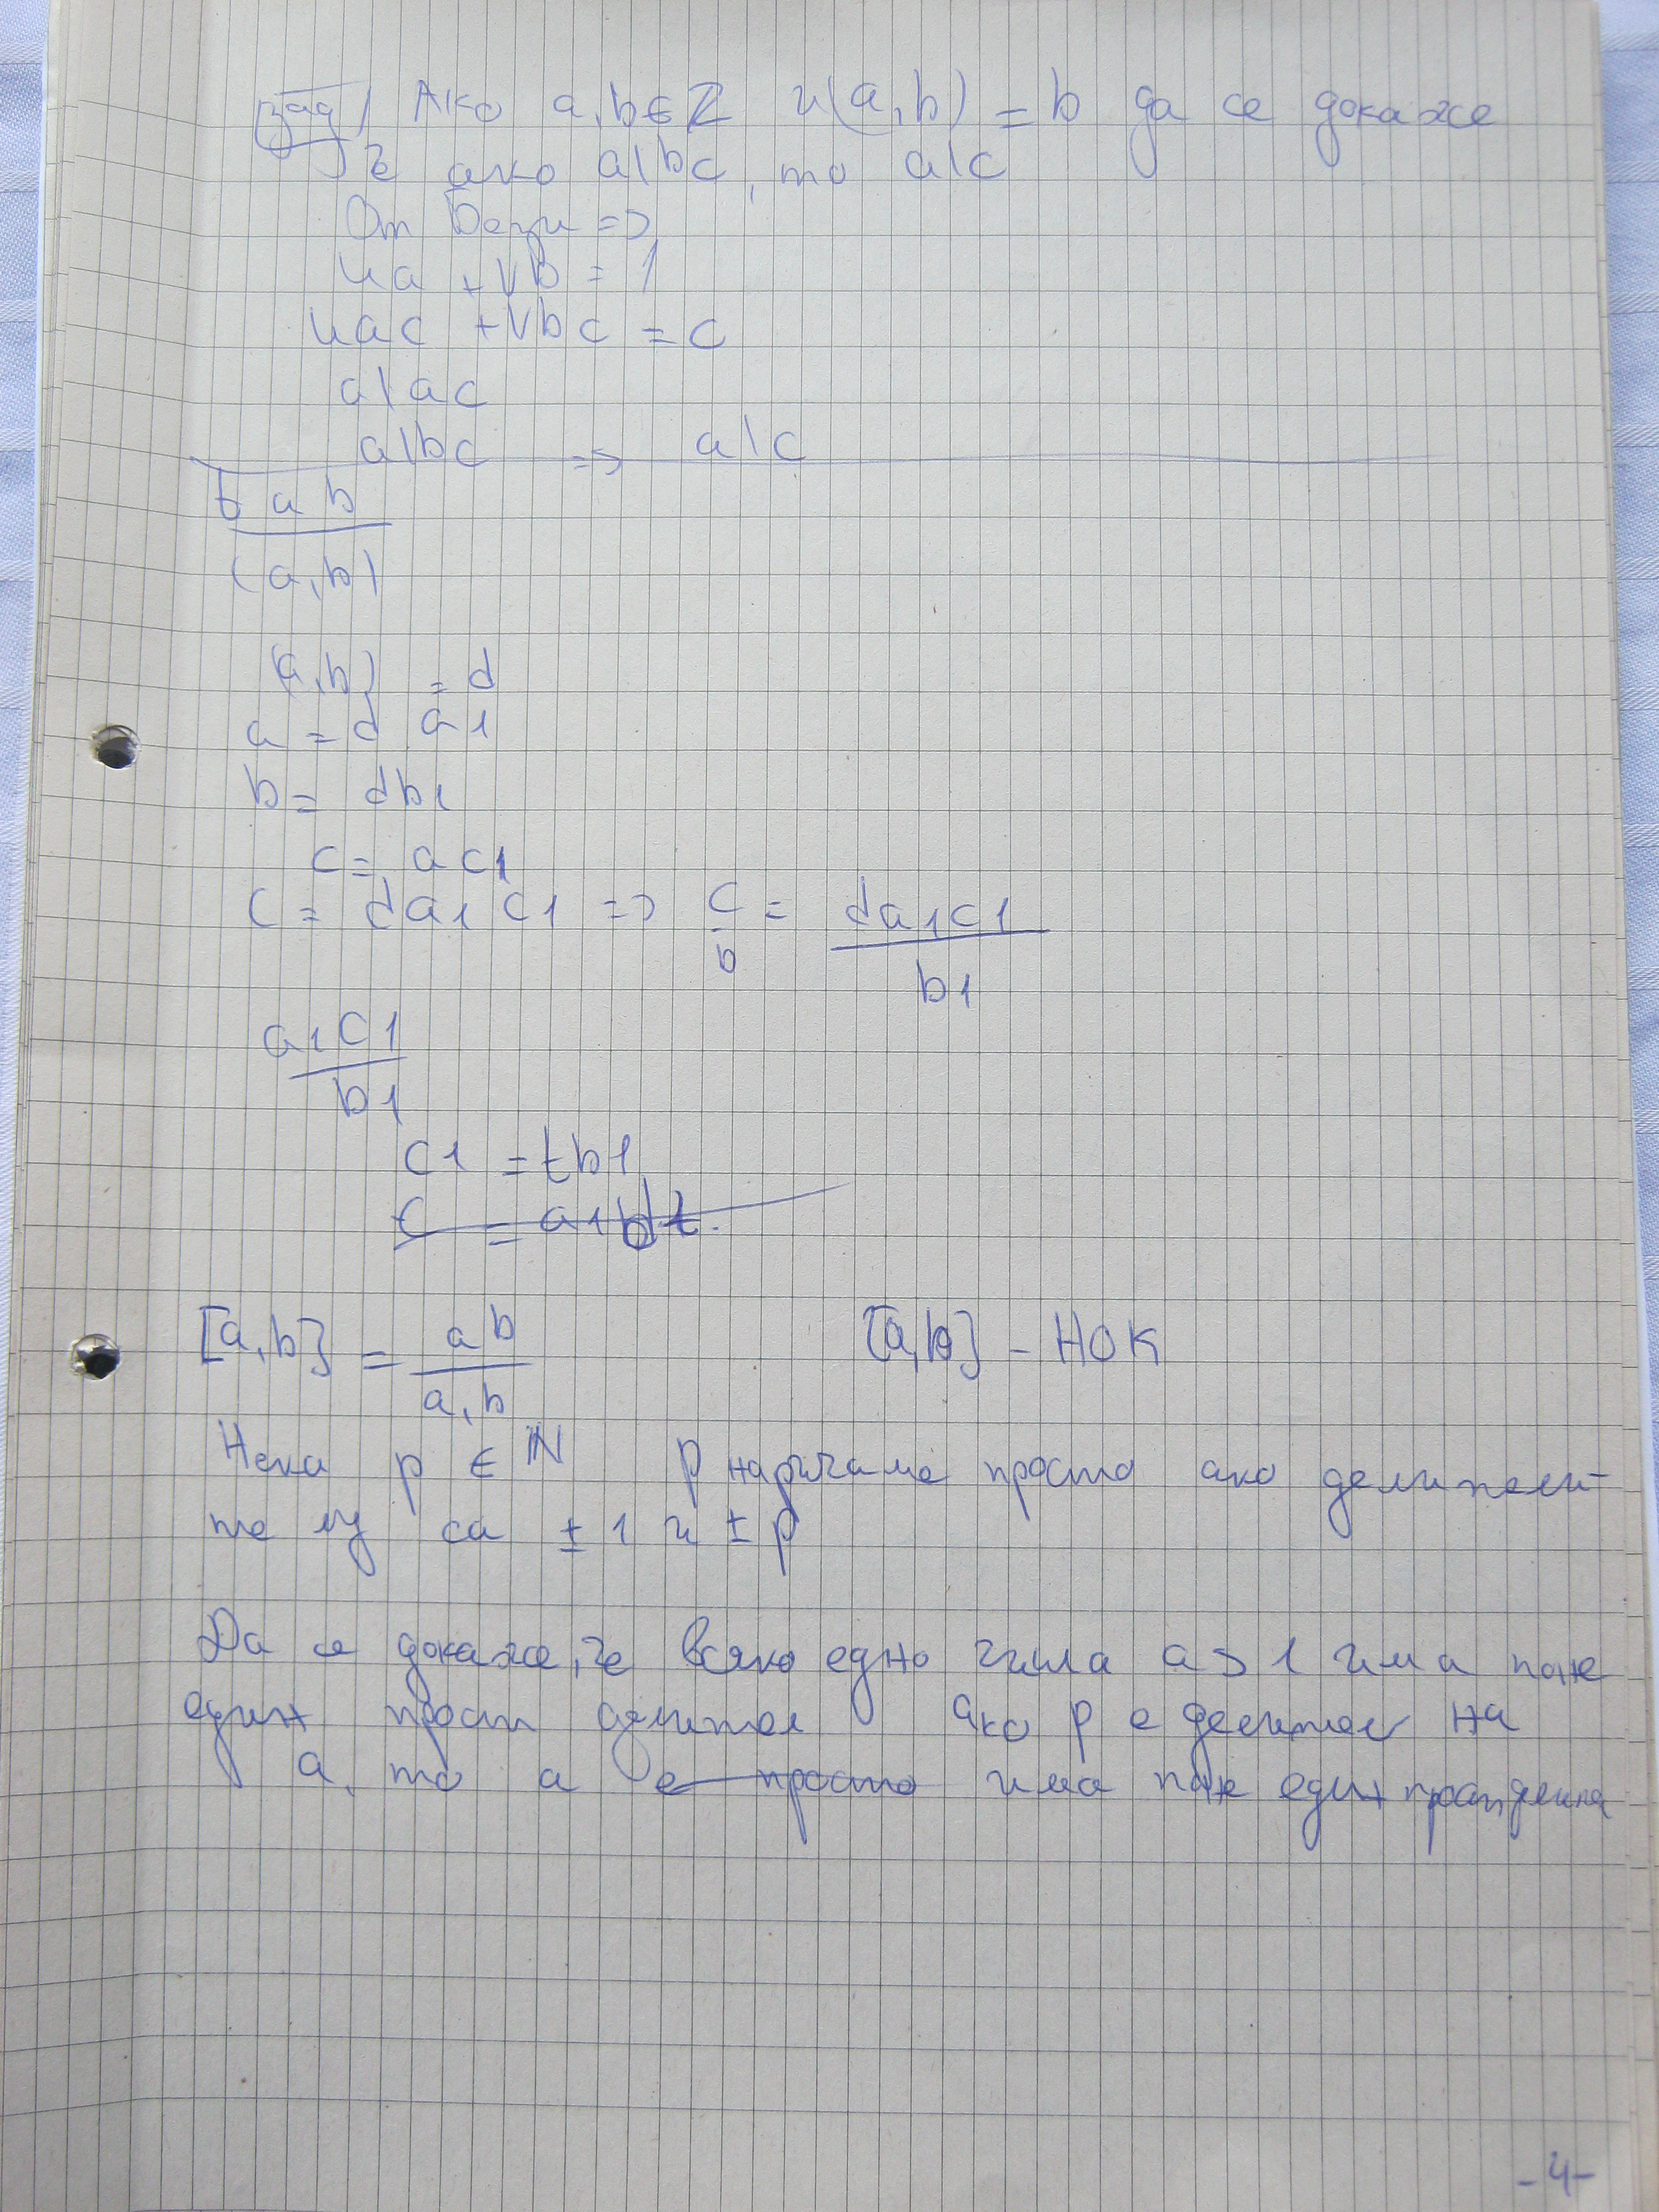 зад/ Ако a,b∈ℤ и (a,b) = b да се докаже
че ако a|bc, то a|c
От Безу =>
ua + vb = 1
uac + vbc = c
a|ac
a|bc => a|c
t a b
(a,b)
(a,b) = d
a = d a1
b = db1
c = ac1
c = da1c1 => c/b = da1c1/b1
a1c1/b1
c1 = tb1
[a,b] = ab/a,b [a,b] - НОК
Нека p ∈ ℕ p наричаме просто ако делители-
те му са ±1 и ±p
Да се докаже, че всяко едно числа a > 1 има поне
един прост делител ако p е делител на
a, то a е просто има поне един прост
-4-